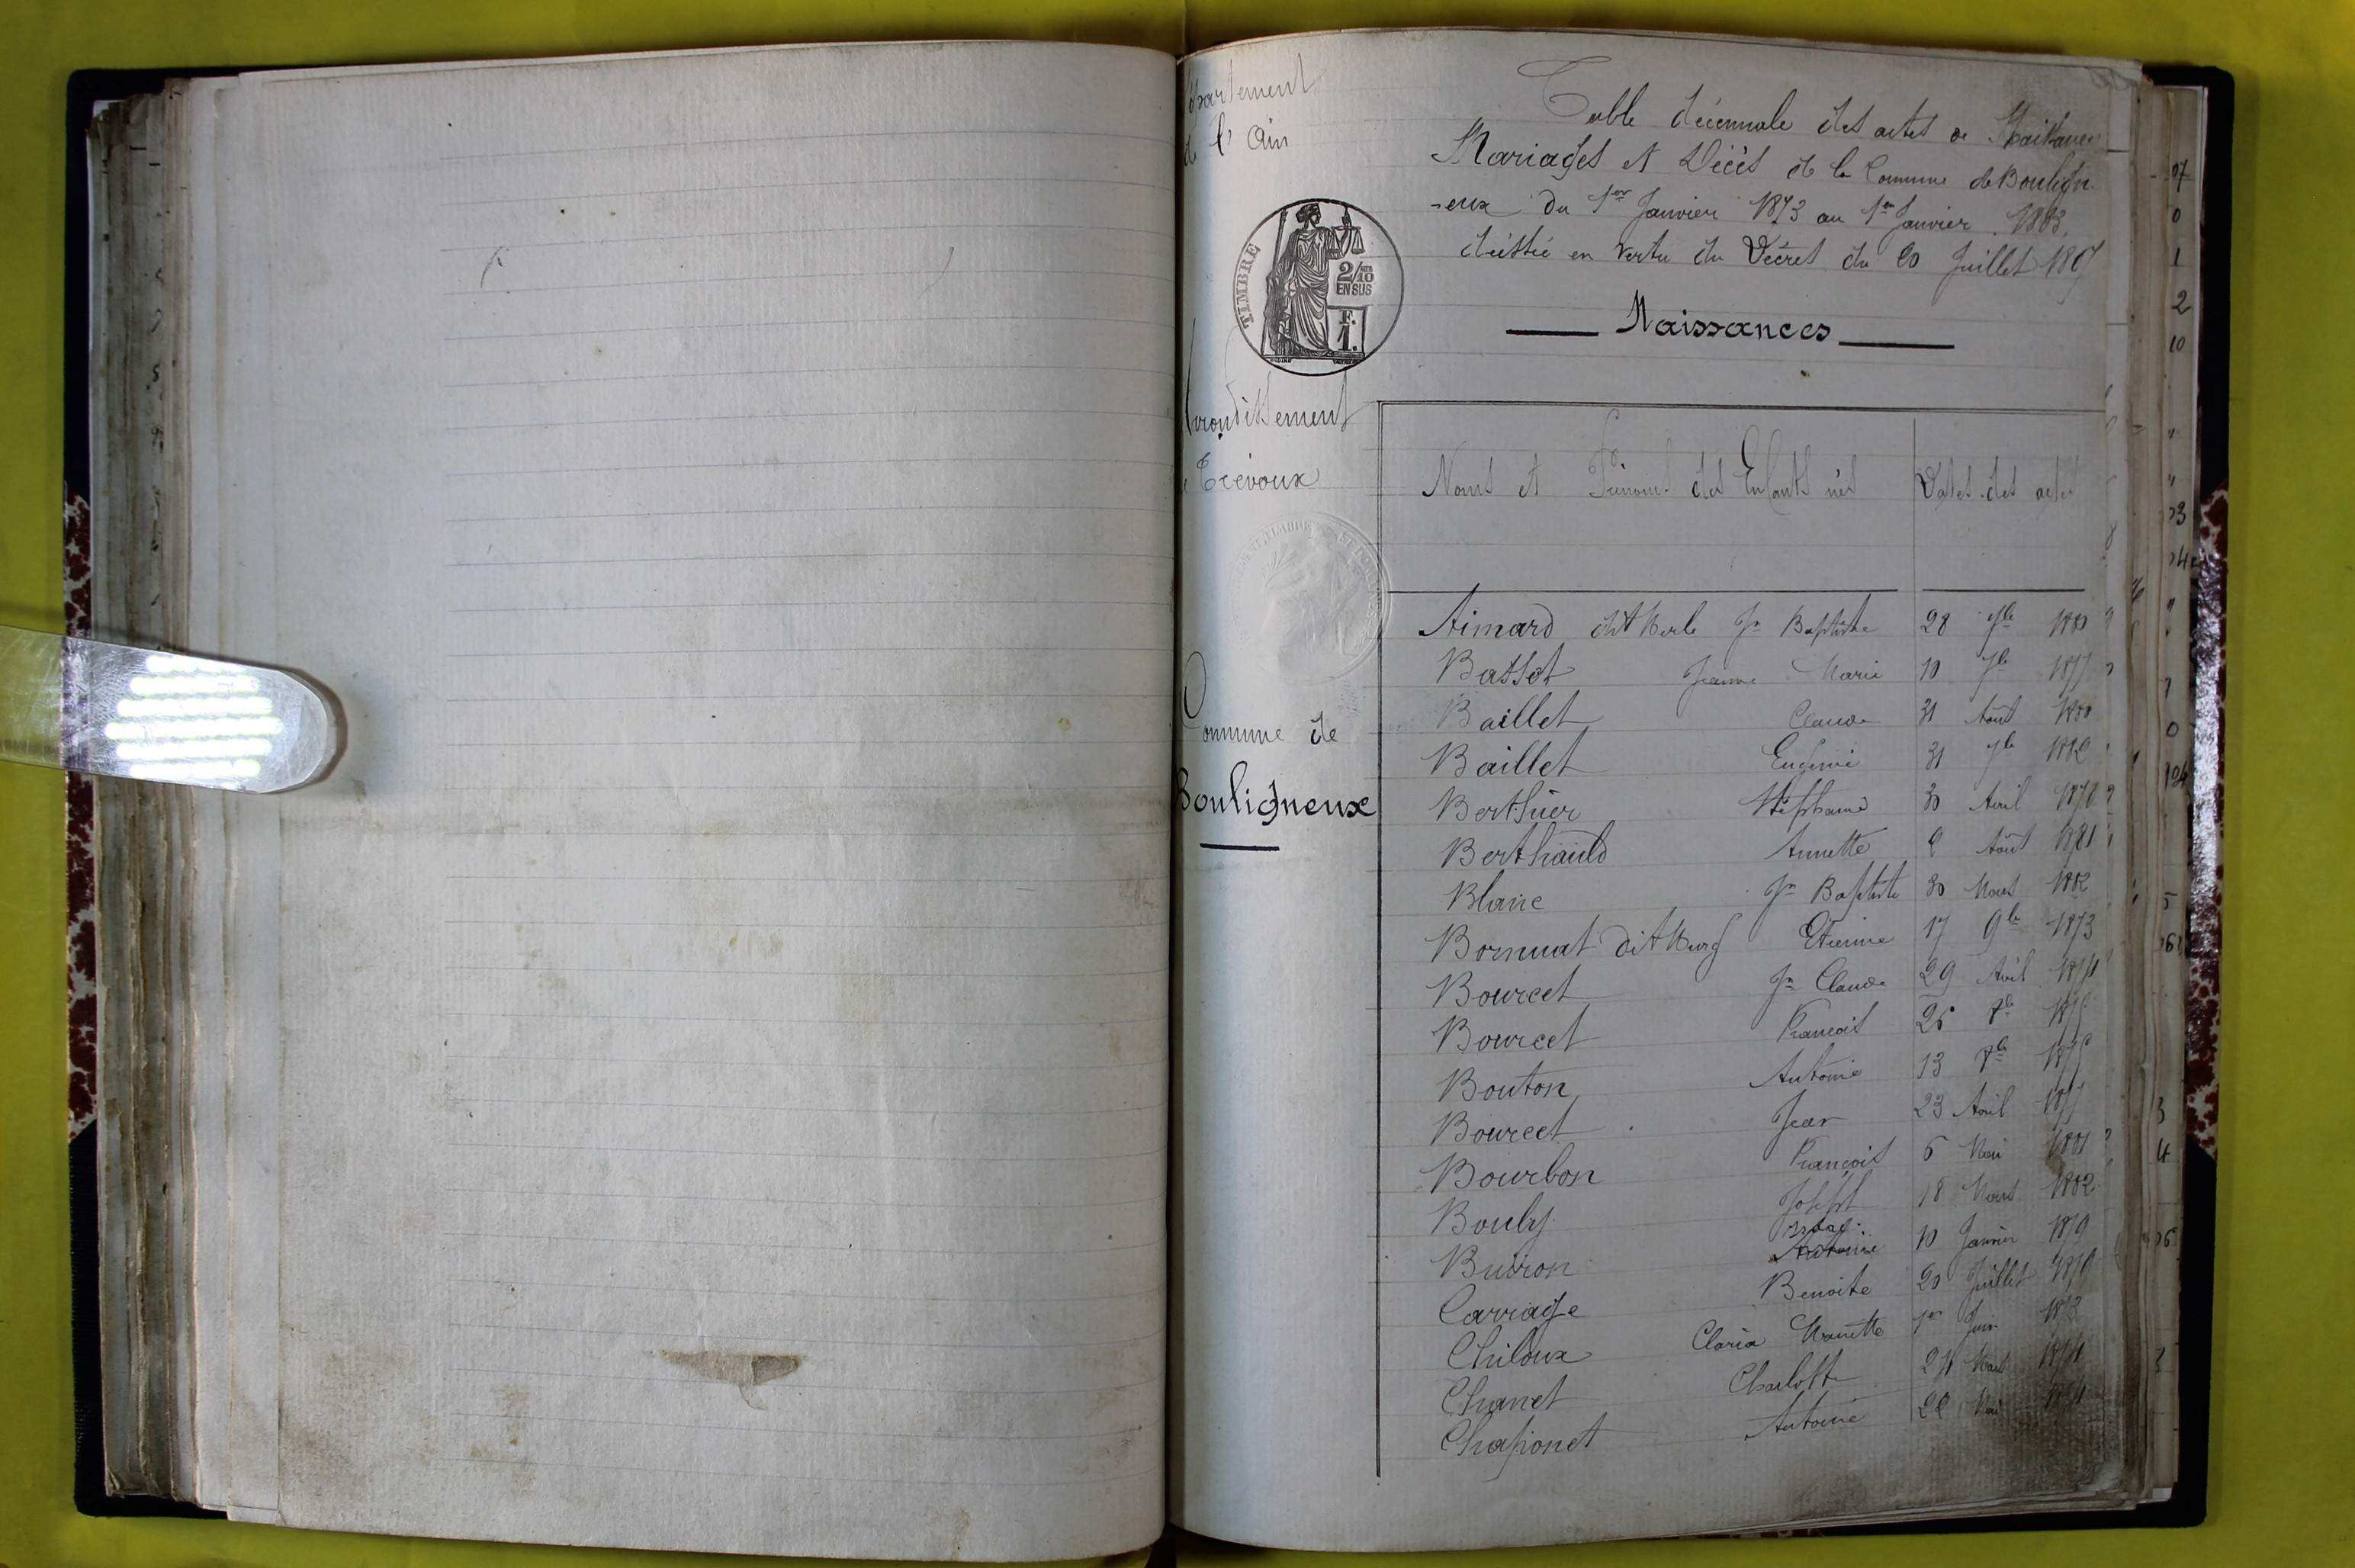 Département
de l'Ain
TIMBRE
2/10
EN SUS
F.
1.
Arrondissement
de Trévoux
Commune de
Bouligneux
Table décennale des actes de Naissances
Mariages et Décès de la Commune de Boulign
-eux du 1er Janvier 1873 au 1er Janvier 1883
du 20 Juillet 1807
Naissances
Noms et Prénoms des Enfants nés
Dates des actes
Aimard dit Berle Jn Baptiste 28 1880
Basset Jeanne Marie 10 1877
Baillet Claude 31 Août 1880
Baillet Eugénie 31
Berthier Stéphanie 30 Avril 1878
Berthauld Annette Août 1881
Blanc Jn Baptiste 30 Mars 1882
Bornuat dit Burg Etienne 17 9bre 1873
Bourcet Jn Claude 29 Avril 1874
Bourcet François
Bouton Antoine 13
Bourcet Jean 23 Avril 1877
Bourbon François 6 Mai 1881
Bouly Joseph 18 Mars 1882
Buiron 10 Janvier 1879
Carriage Benoite 20 Juillet 1879
Chiloux Claria 1er Juin 1873
Chanet Charlotte 24 Mars 1874
Chaponet Antoine Mai